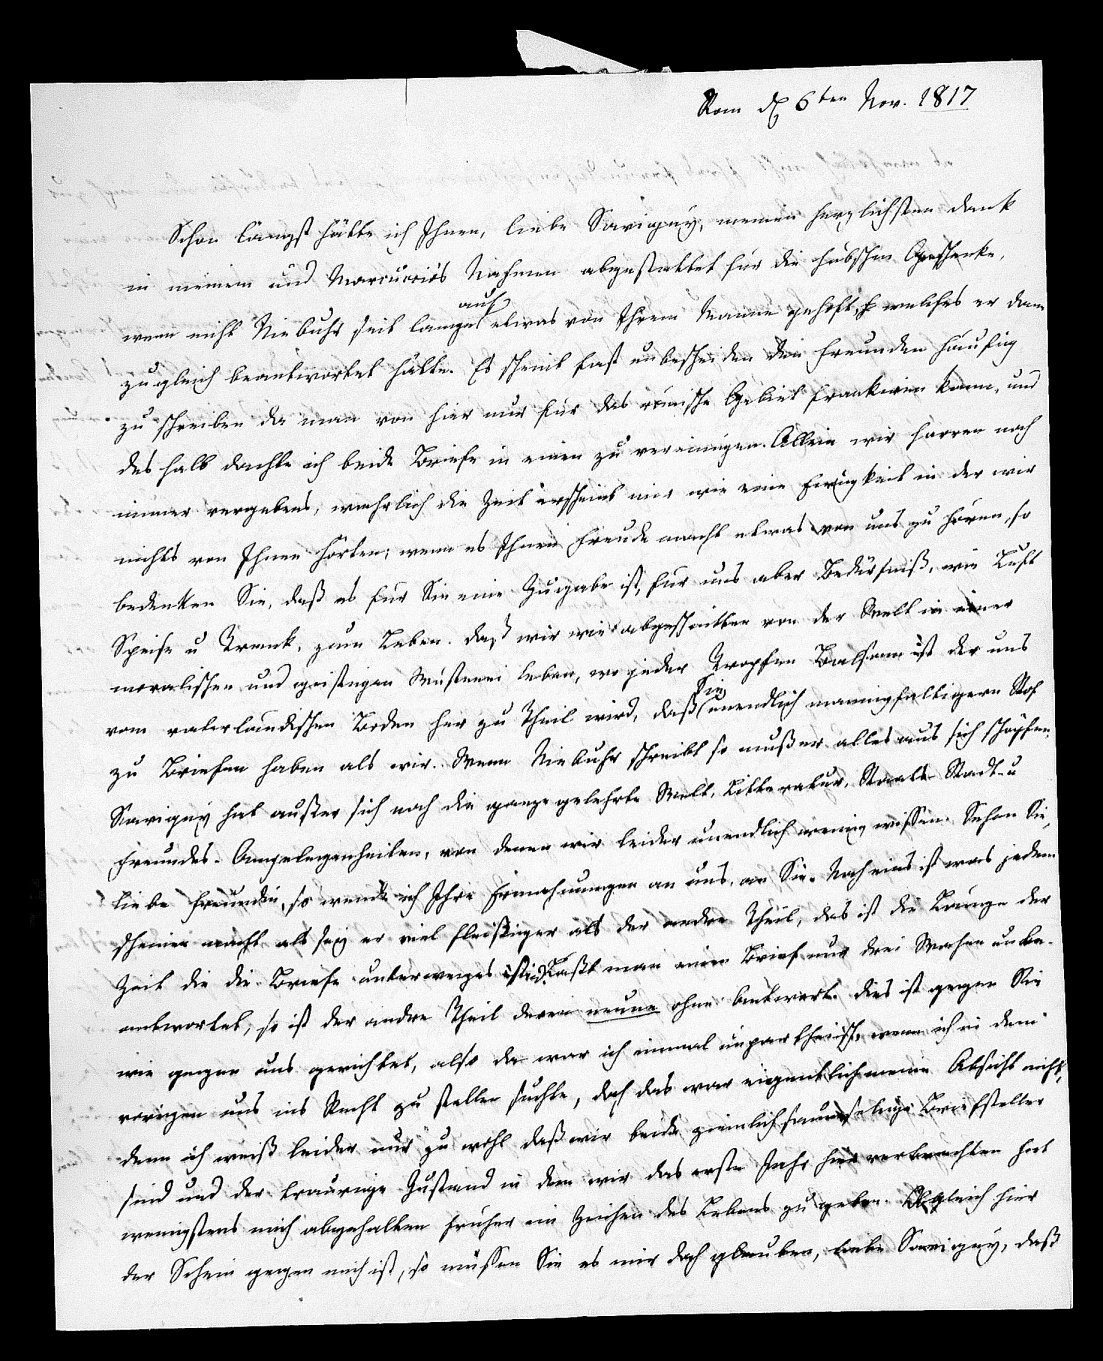 Rom d 6ten Nov. 1817
Schon längst hätte ich Ihnen, liebe Savigny, meinen herzlichsten Dank
in meinem und Marcuccios Nahmen abgestattet für die hübschen Geschenke,
wenn nicht Niebuhr seit lange auf etwas von Ihrem Manne gehofft welches er dann
zugleich beantwortet hätte. Es scheint fast unbescheiden den Freunden häufig
zu schreiben da man von hier nur für das römische Gebiet frankiren kann, und
deshalb dachte ich beide Briefe in einen zu vereinigen. Allein wir harren noch
immer vergebens, wahrlich die Zeit erscheint mir wie eine Ewigkeit in der wir
nichts von Ihnen hörten; wenn es Ihnen Freude macht etwas von uns zu hören, so
bedenken Sie, daß es für Sie eine Zugabe ist, für uns aber Bedürfniß, wie Luft
Speise u Trank, zum Leben. Daß wir wie abgeschnitten von der Welt in einer
moralischen und geistigen Wüstenei leben, wo jeder Tropfen Balsam ist der uns
vom vaterländischen Boden her zu Theil wird, daß Sie unendlich mannigfaltigern Stof
zu Briefen haben als wir. Wenn Niebuhr schreibt so muß er alles aus sich schöpfen
Savigny hat außer sich noch die ganze gelehrte Welt, Litteratur, Staats- Stadt- u
Freundes- Angelegenheiten, von denen wir leider unendlich wenig wissen. Sehen Sie,
liebe Freundin, so wende ich Ihre Ermahnungen an uns, an Sie. Noch eins ist was jeden
scheinen macht als sey er viel fleißiger als der andre Theil, das ist die Länge der
Zeit die die Briefe unterweges sind. Läßt man einen Brief nur drei Wochen unbe-
antwortet, so ist der andre Theil deren neune ohne Antwort. Dies ist gegen Sie
wie gegen uns gerichtet, also da war ich einmal unpartheiisch, wenn ich in dem
vorigen uns ins Recht zu stellen suchte, doch das war eigentlich meine Absicht nicht,
denn ich weiß leider nur zu wohl daß wir beide ziemlich saumselige Briefsteller
sind und der traurige Zustand in dem wir das erste Jahr hier verbrachten hat
wenigstens mich abgehalten früher ein Zeichen des Lebens zu geben. Obgleich hier
der Schein gegen mich ist, so müssen Sie es mir doch glauben, liebe Savigny, daß